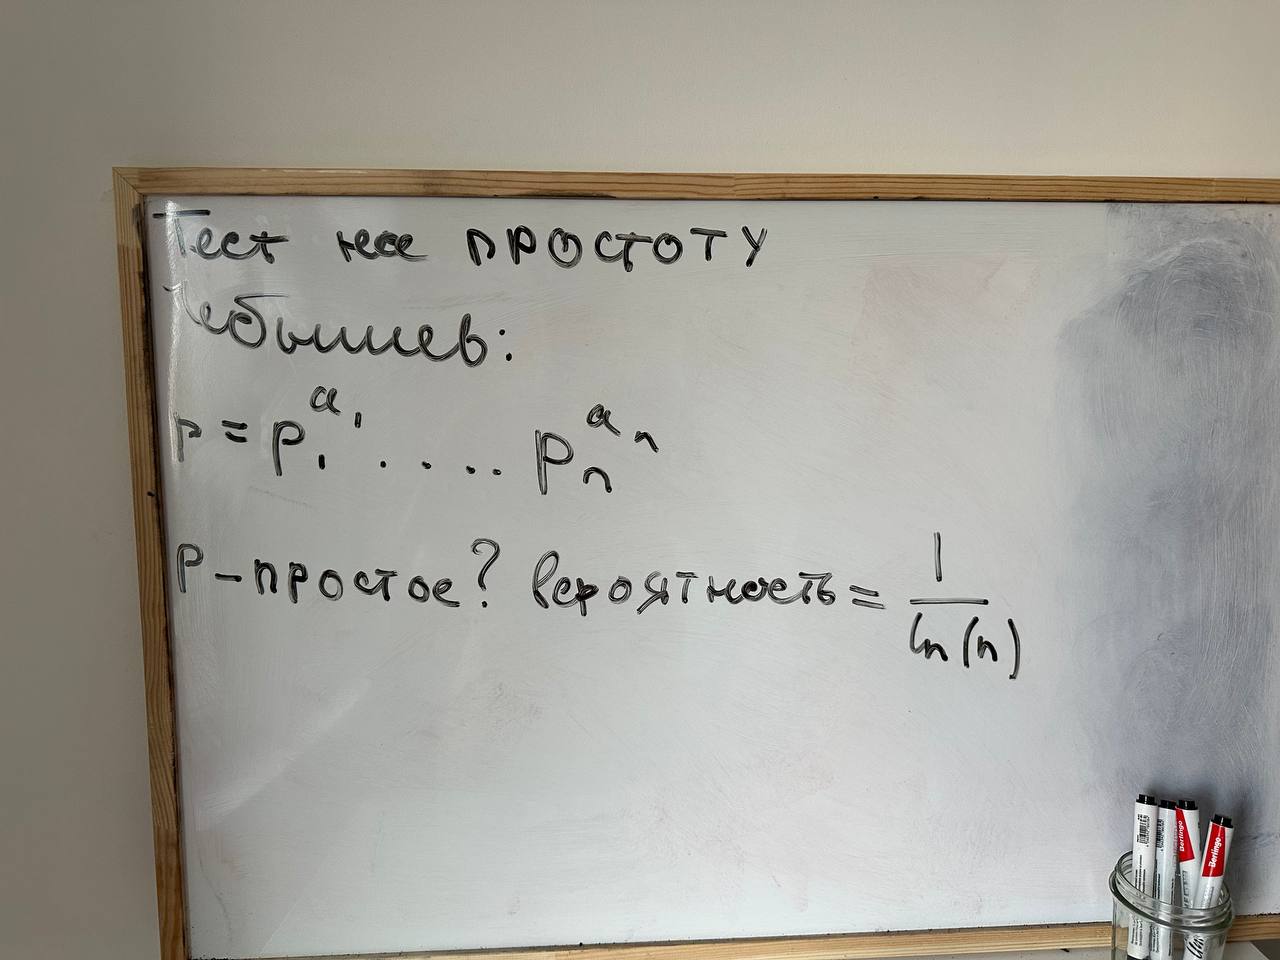 Тест на простоту
Чебышев:
p = p₁^a₁ ..... pₙ^aₙ
p – простое? вероятность = 1/ln(n)
Berlingo
Berlingo